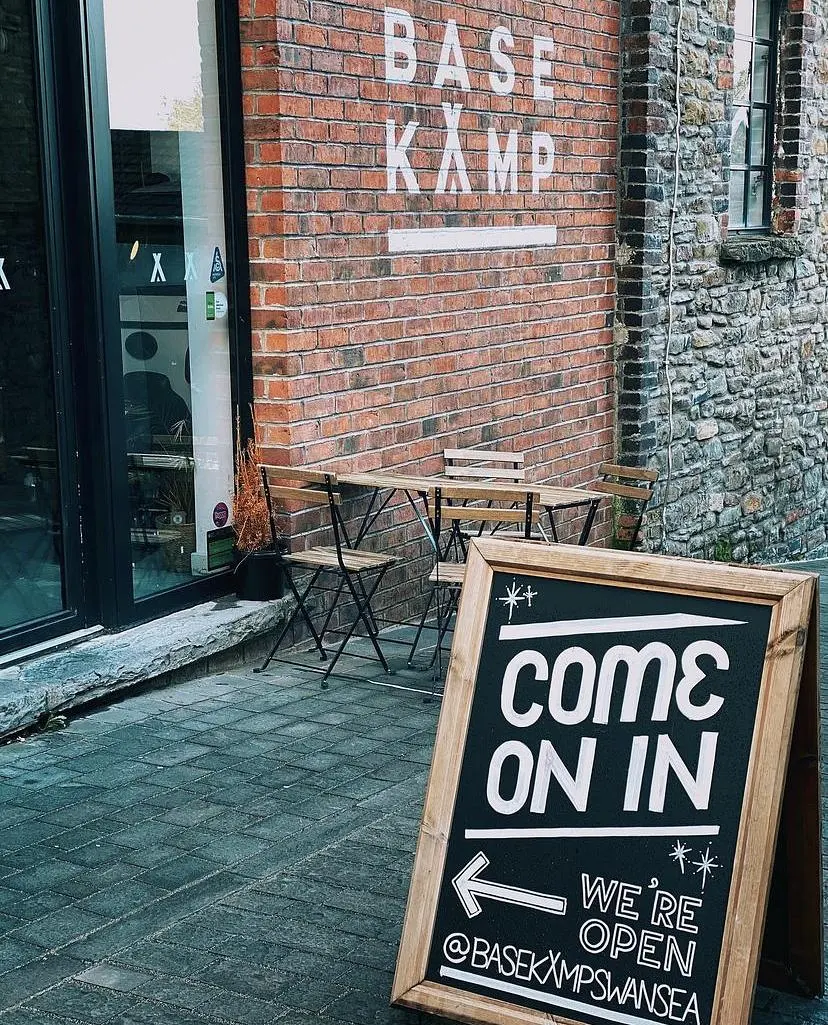 BASE
KAMP
COME
ON IN
WE'RE
OPEN
@BASEKAMPSWANSEA